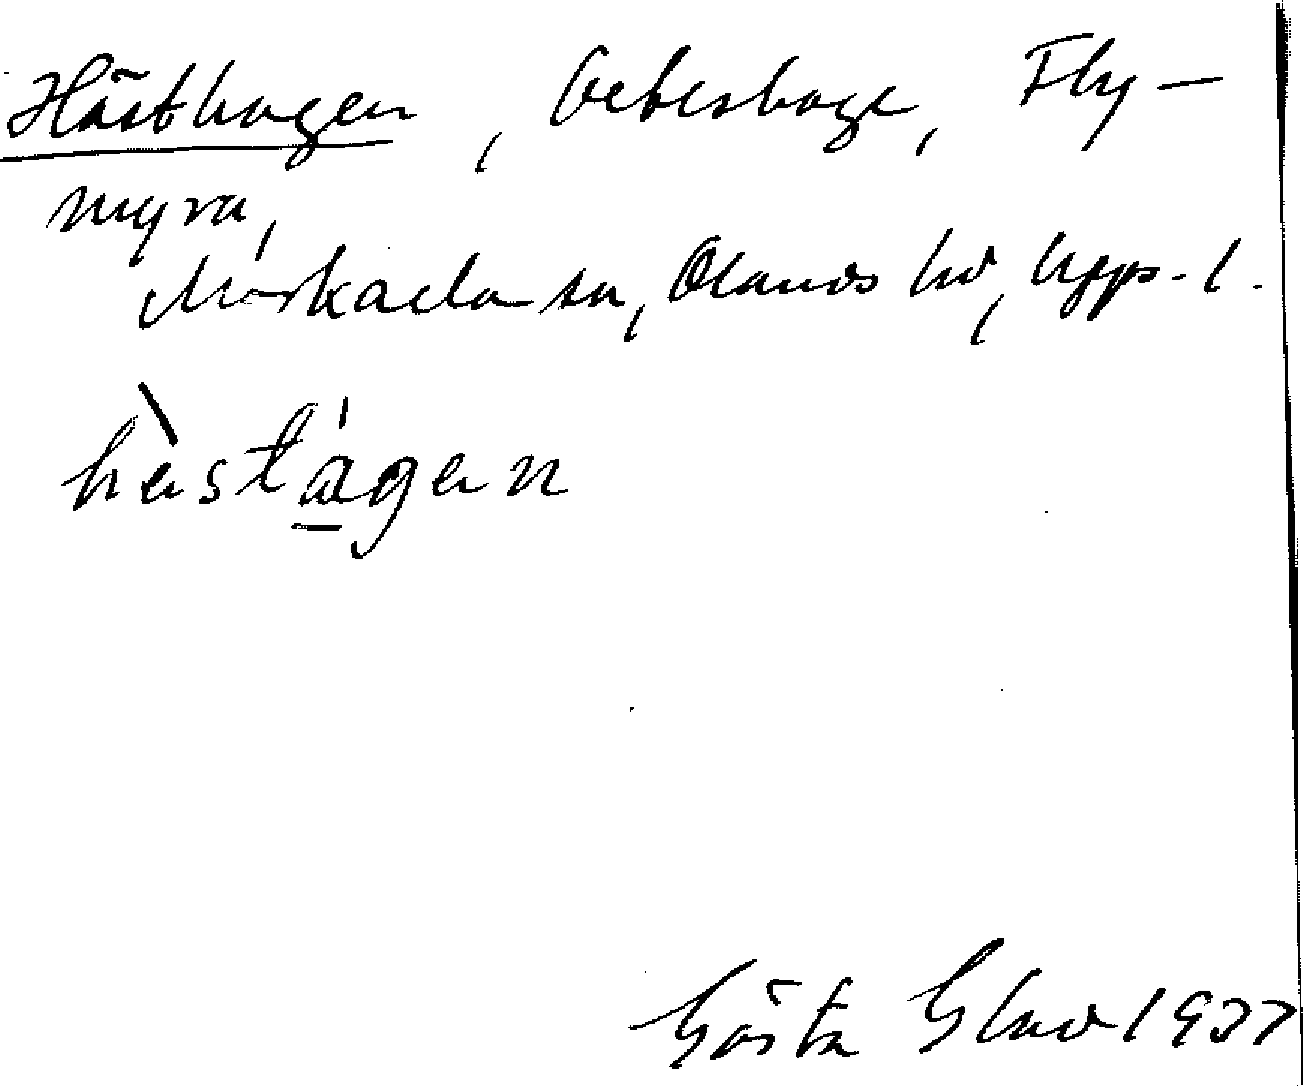 Hästhagen, beteshage, Fly-
myra,
Morkarla sn, Olands hd, Uppl.
hèstágen
Gösta 1937